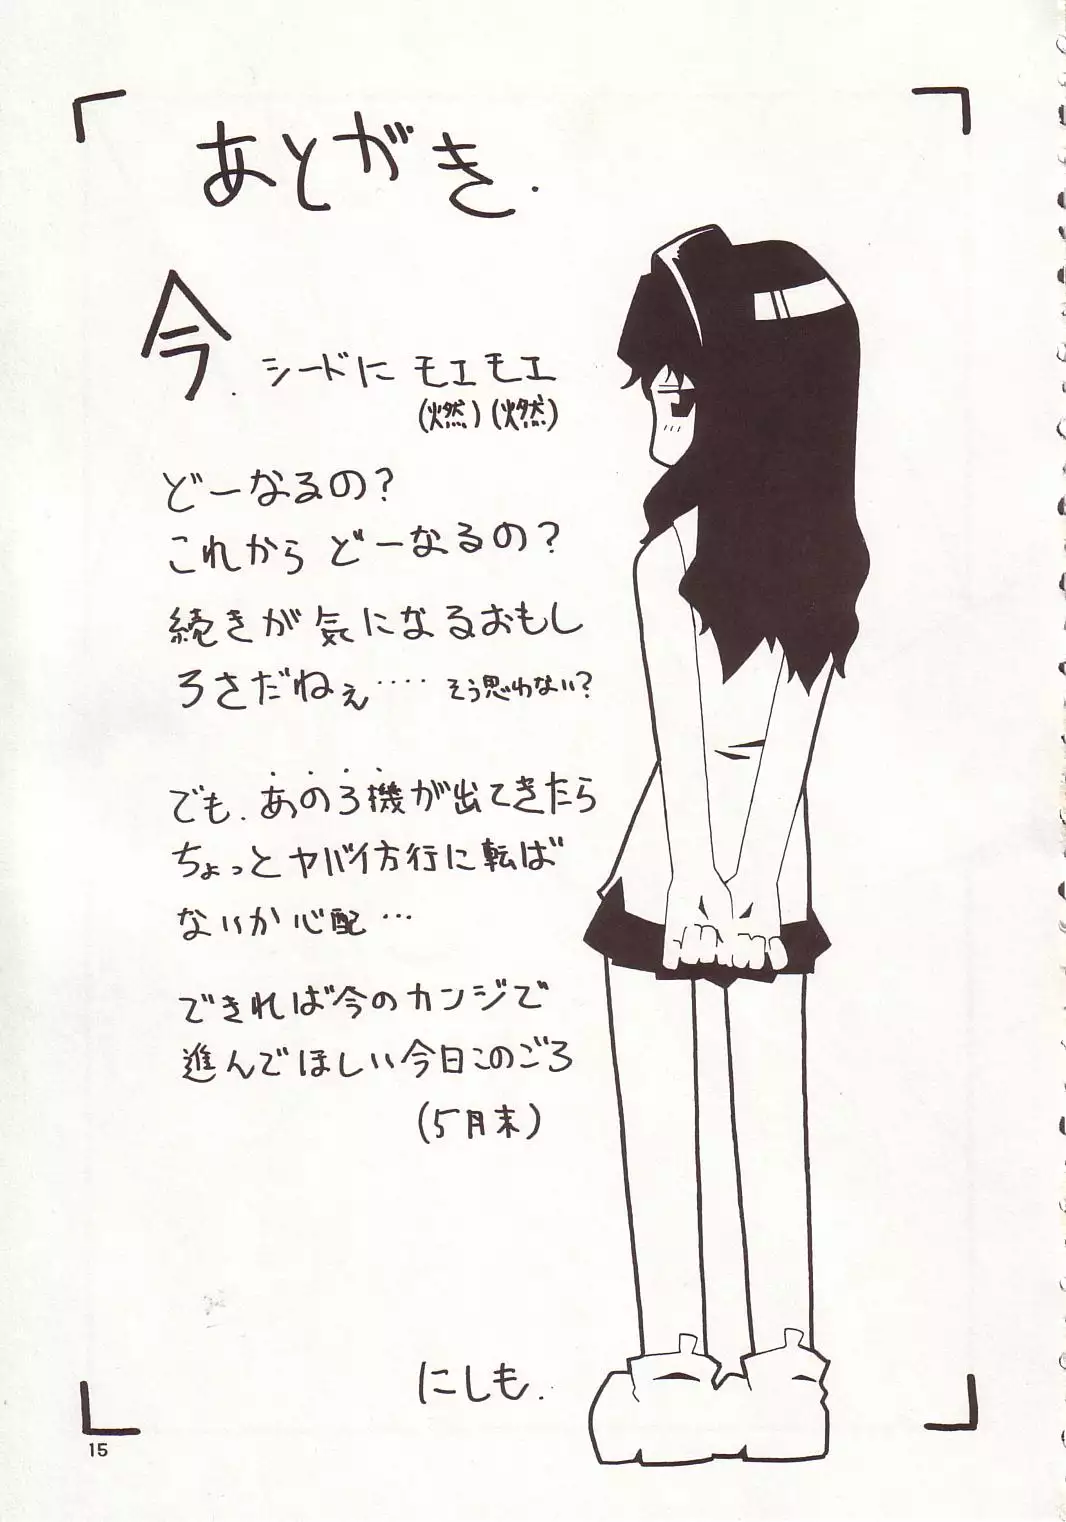 あとがき.
今. シードにモエモエ
(燃)(燃)
どーなるの?
これからどーなるの?
続きが気になるおもし
ろさだねぇ‥‥ そう思わない?
でも、あの3機が出てきたら
ちょっとヤバイ方行に転ば
ないか心配…
できれば今のカンジで
進んでほしい今日このごろ
(5月末)
にしも.
15